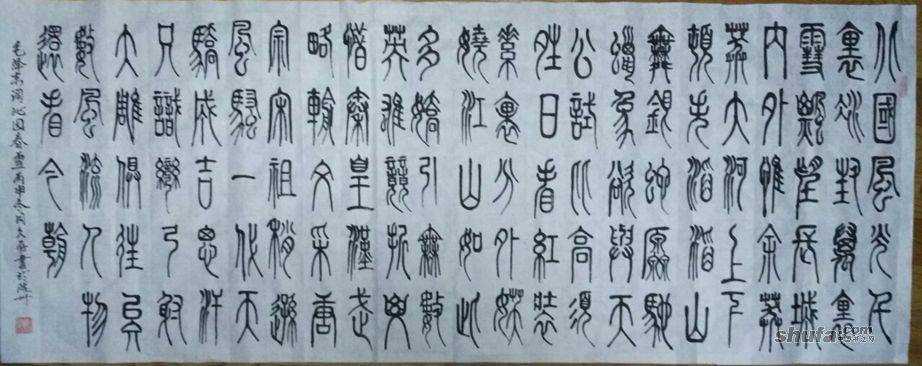 北國風光千
里冰封萬里
雪飄望長城
內外惟余莽
莽大河上下
頓失滔滔山
舞銀蛇原馳
蠟象欲與天
公試比高須
晴日看紅裝
素裹分外妖
嬈江山如此
多嬌引無數
英雄競折腰
惜秦皇漢武
略輸文采唐
宗宋祖稍遜
風騷一代天
驕成吉思汗
只識彎弓射
大雕俱往矣
數風流人物
還看今朝
毛澤東詞沁园春雪丙申冬月
shufa
.com